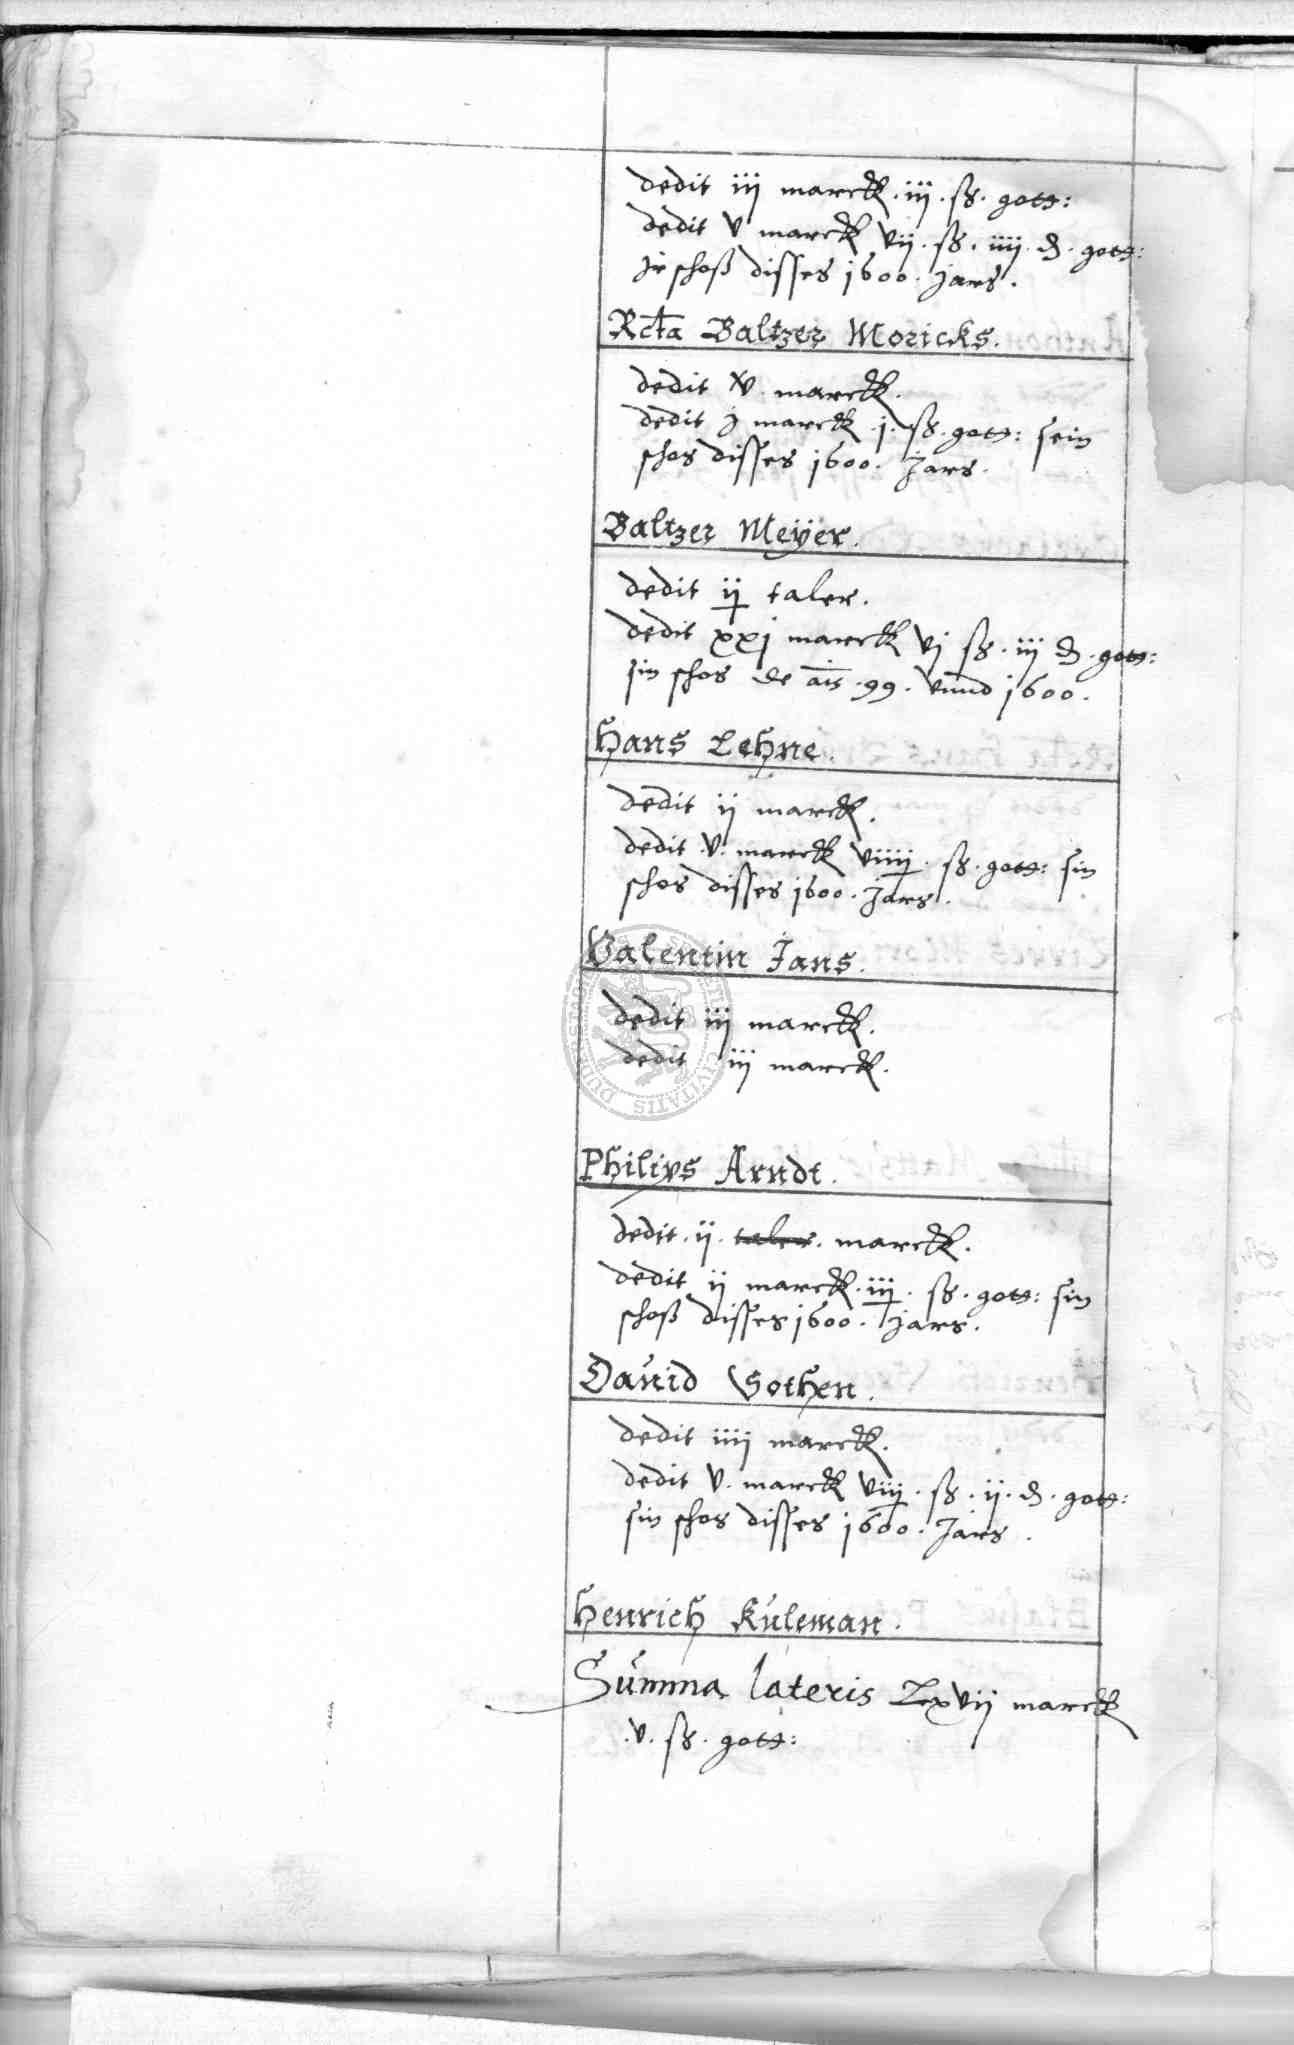 dedit iij marck . iij . ß . gott:
dedit v marck vij . ß . iiij . d . gott:
jr schoß disses 1600 . jars .
Rcta Baltzer Moricks .
dedit xv . marck .
dedit j marck . j . ß . gott: sein
schos disses 1600 . Jars .
Baltzer Meÿer .
dedit ij taler .
dedit xxj marck vj ß . iij d . gott:
sin schos de ais . 99 . vnnd 1600 .
Hans Lehne .
dedit ij marck .
dedit . v . marck viiij . ß . gott: sin
schos disses 1600 . Jars .
Valentin Jans .
dedit iij marck .
dedit iij marck .
Philips Arndt .
dedit . ij . taler . marck .
dedit ij marck . iij . ß . gott: sin
schoß disses 1600 . jars .
Dauid Sothen .
dedit iiij marck .
dedit v . marck viij . ß . ij . d . gott:
sin schos disses 1600 . Jars .
Henrich Kuleman .
Summa lateris Lxvij marck
. v . ß . gott: